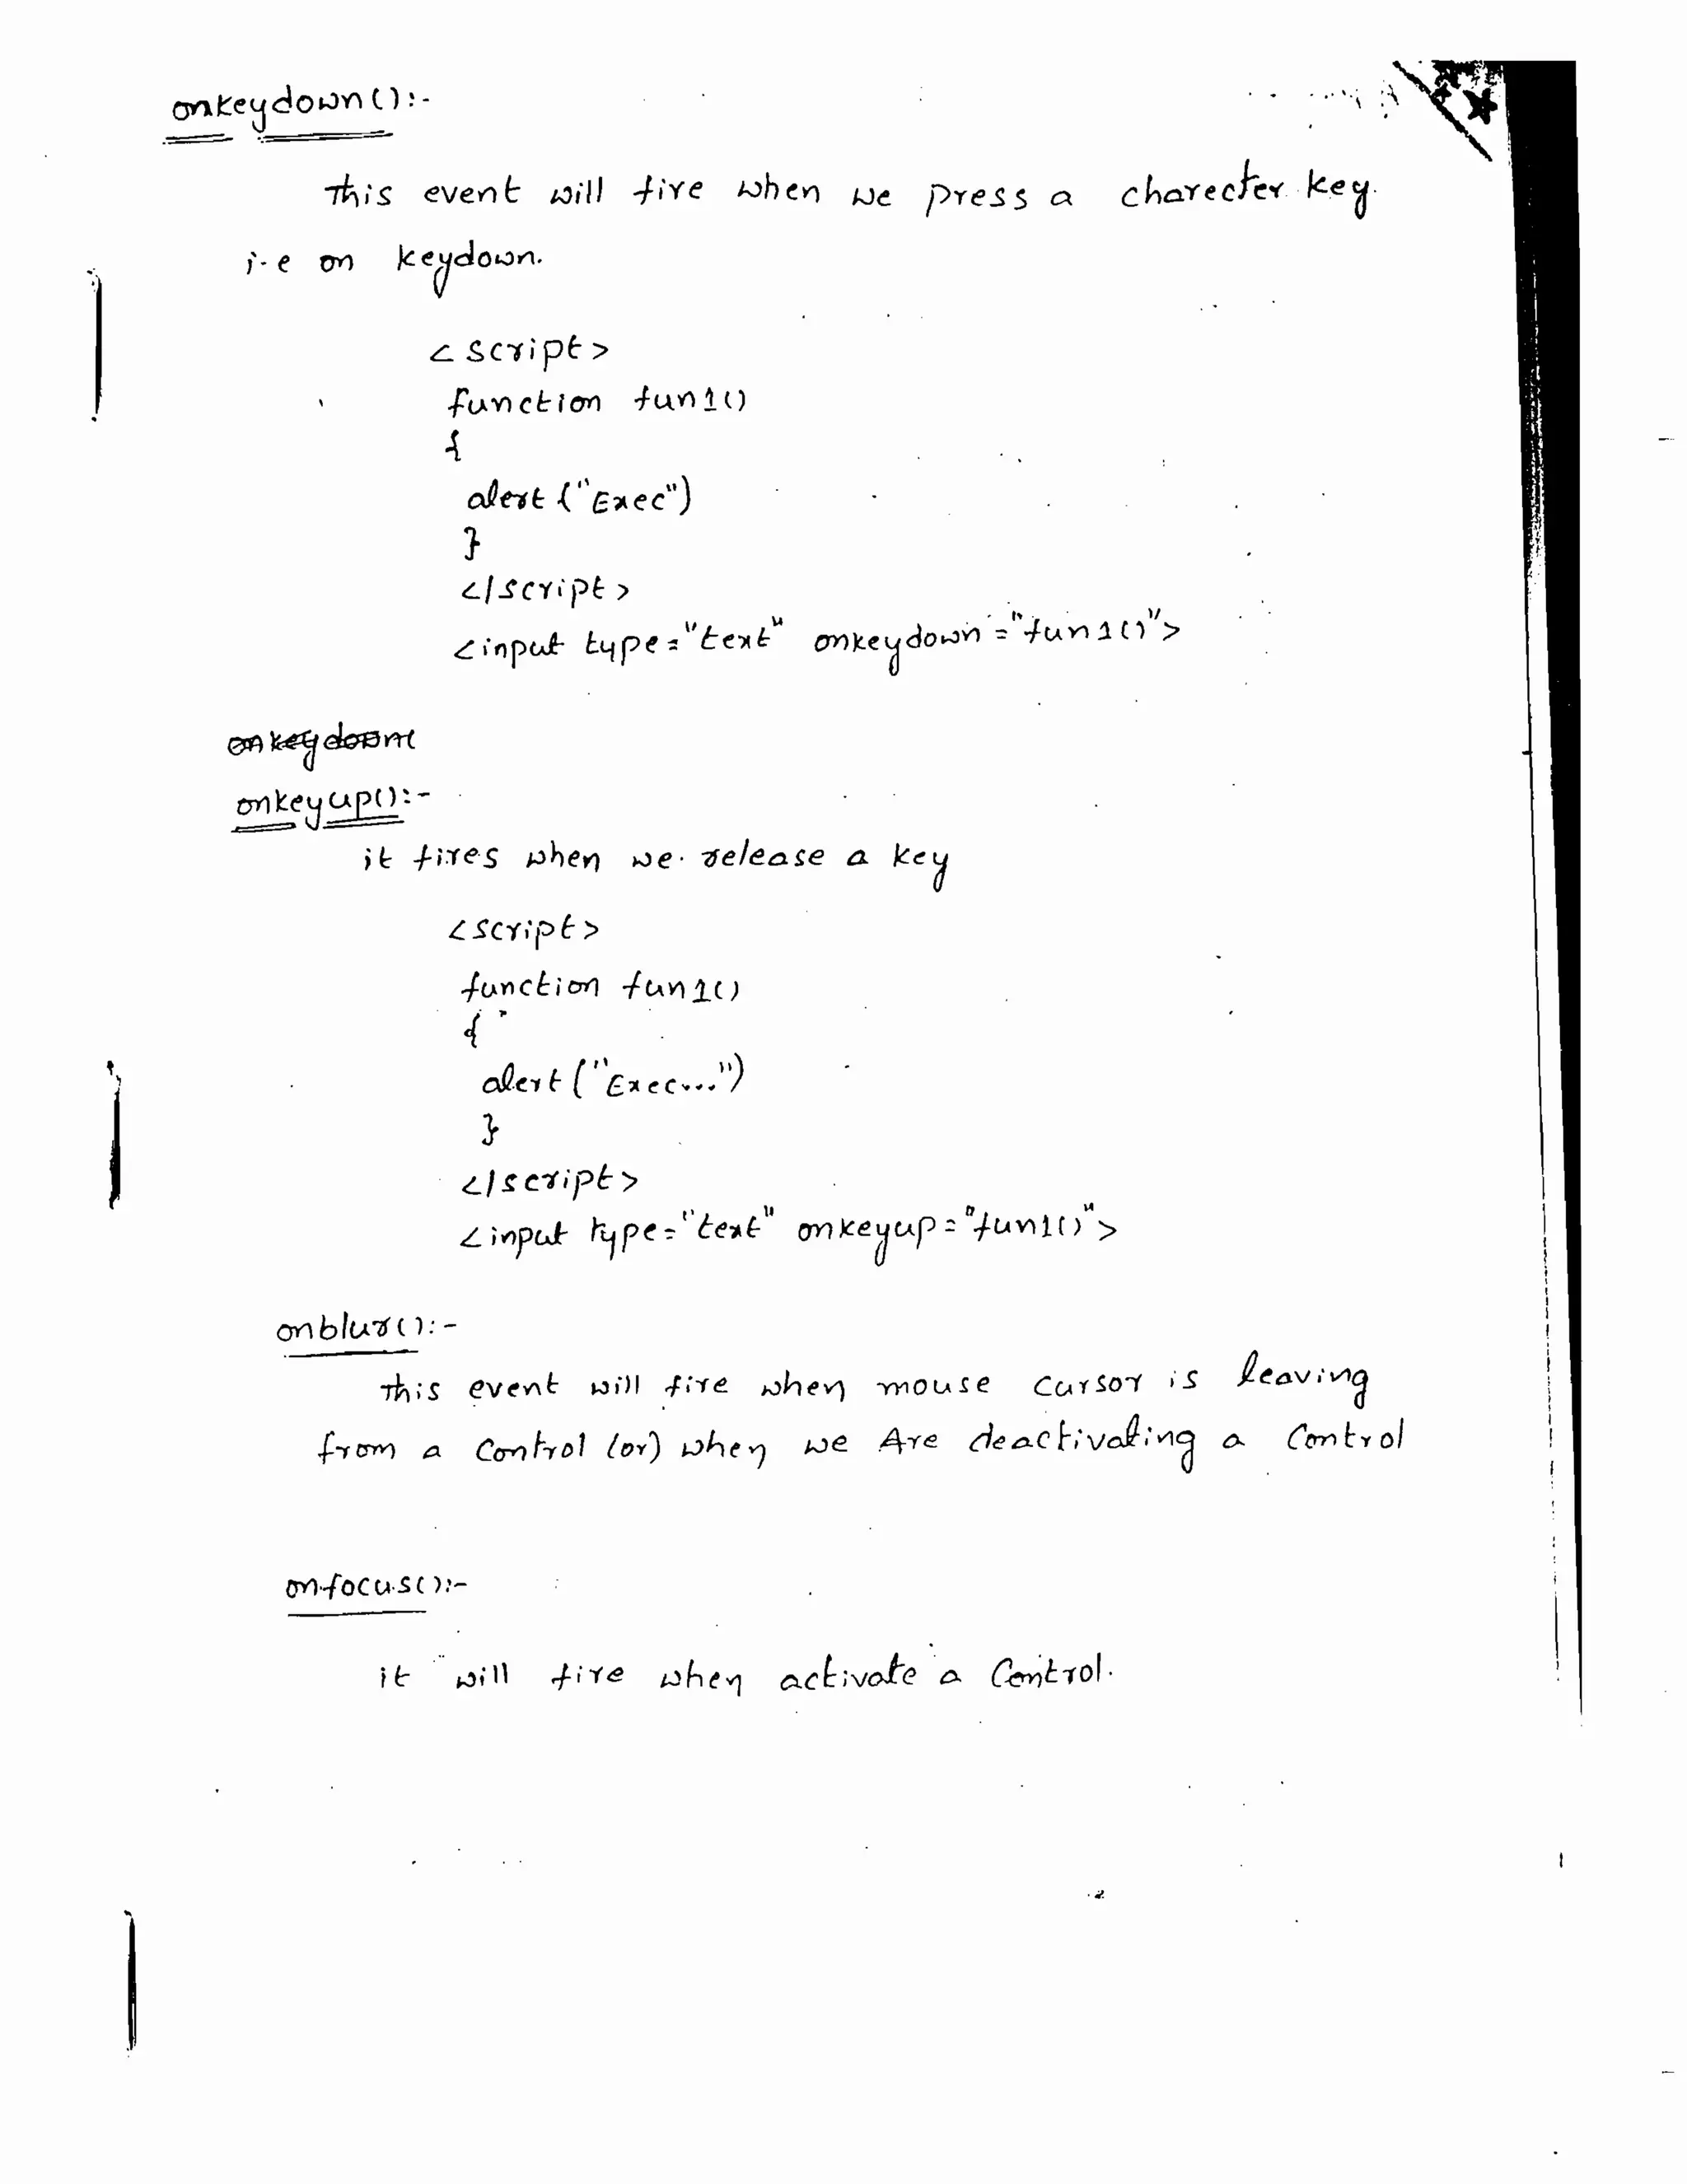 onkeydown():-
This event will fire when we press a charecter key.
i-e on keydown.
<script>
function fun1()
{
alert ("Exec")
}
</script>
<input type="text" onkeydown="fun1()">
onkeydown
onkeyup():-
it fires when we release a key
<script>
function fun1()
{
alert ("Exec...")
}
</script>
<input type="text" onkeyup="fun1()">
onblur():-
This event will fire when mouse cursor is leaving
from a Control (or) when we Are deactivating a Control
onfocus():-
it will fire when activate a Control.